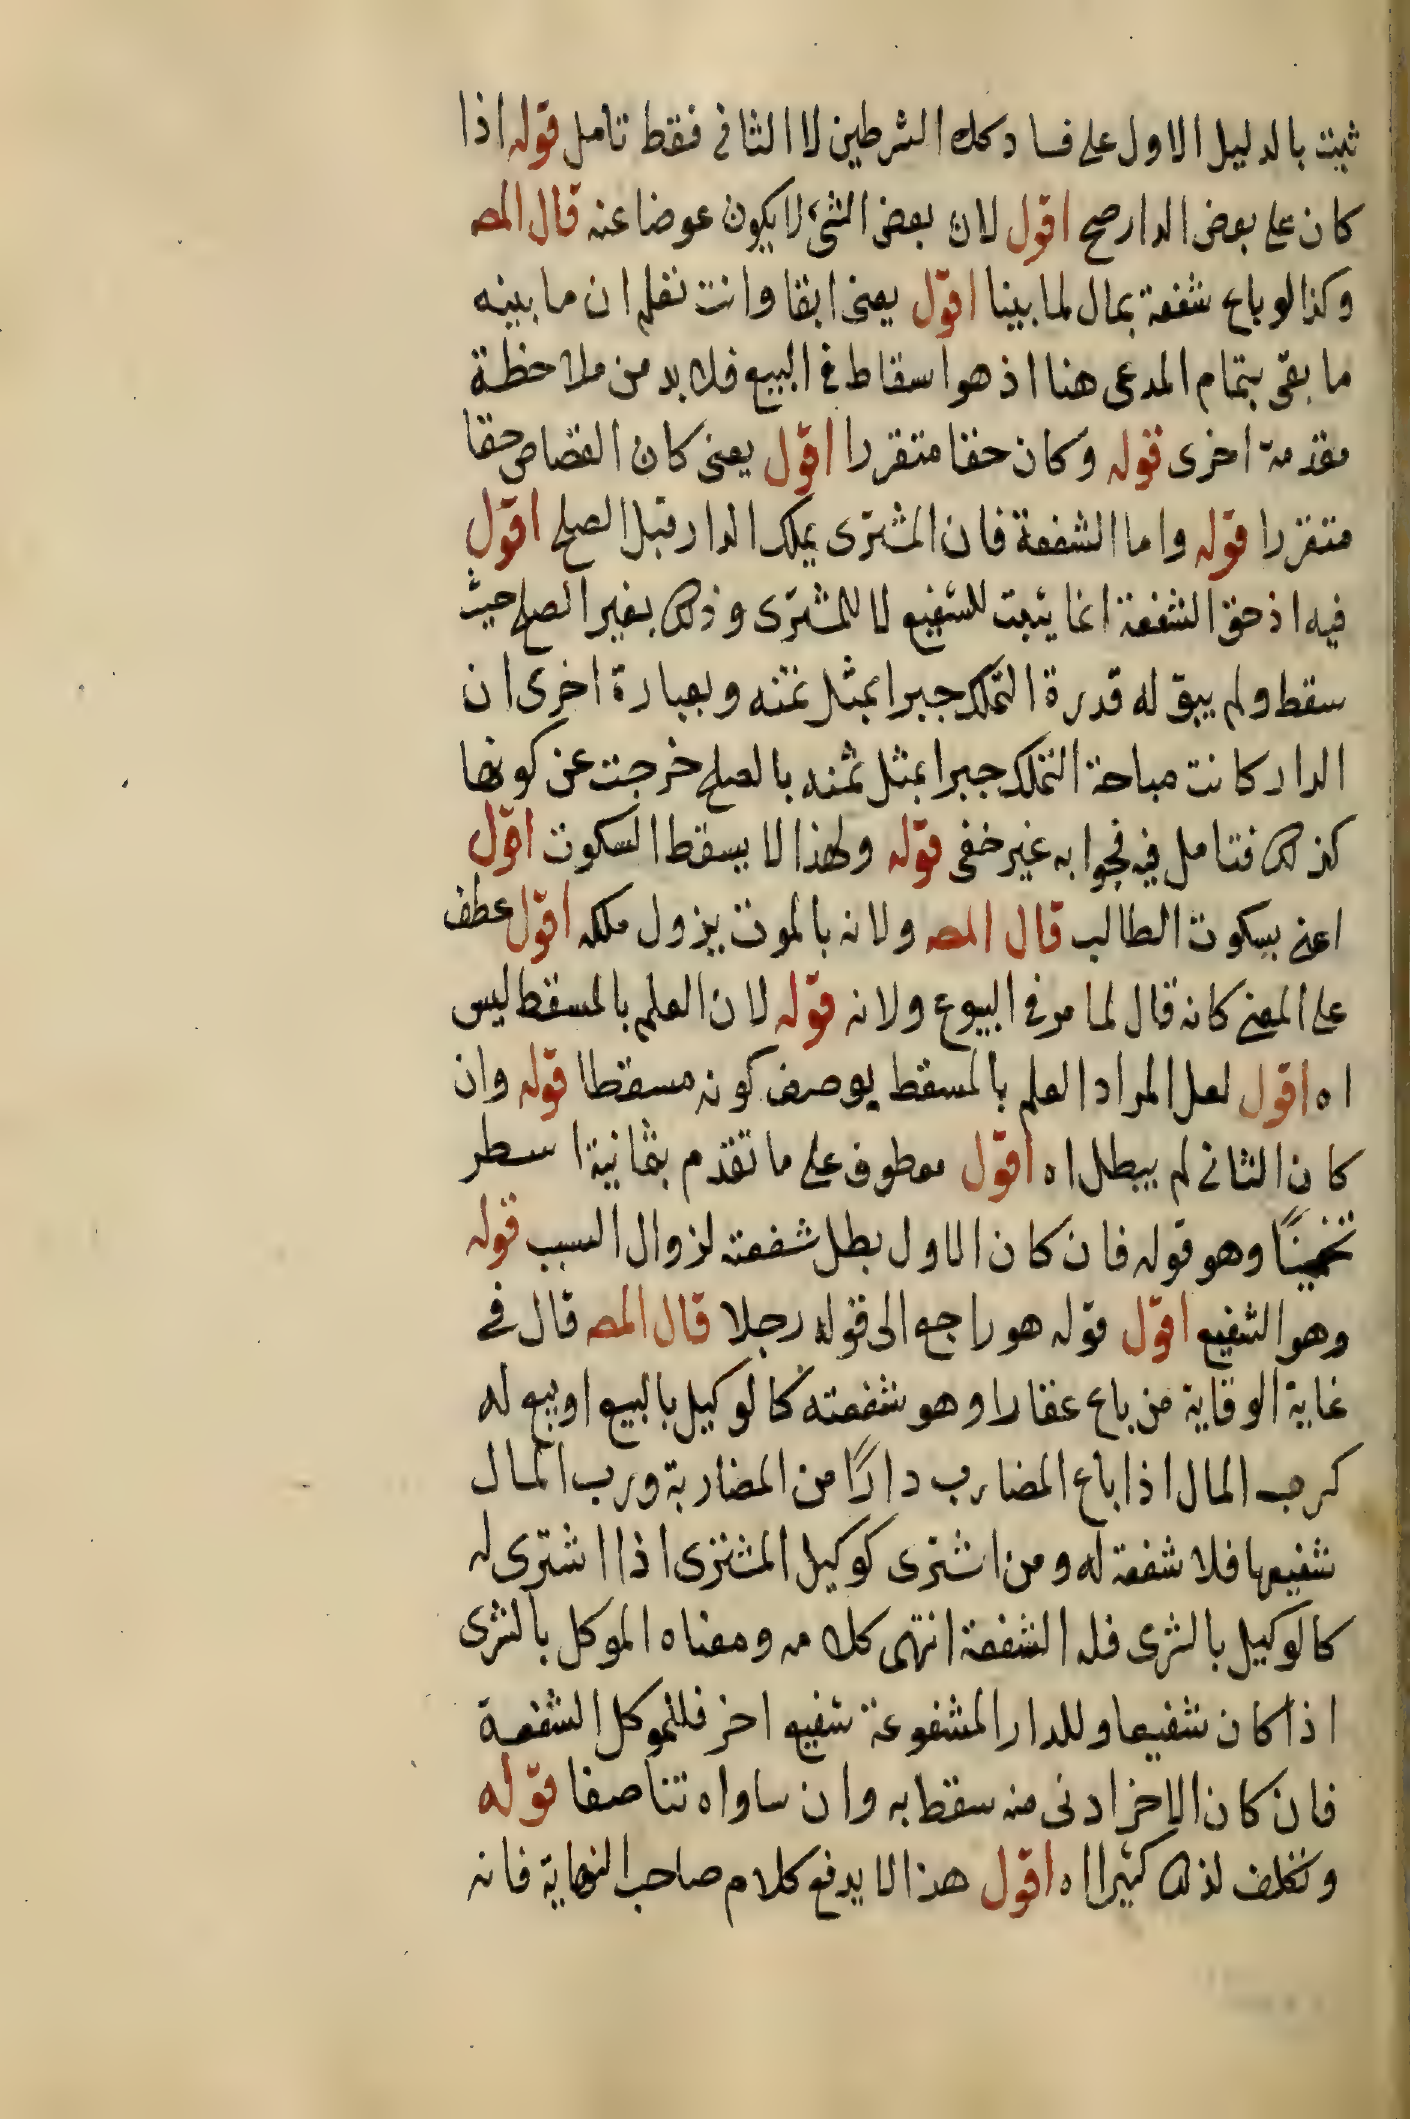 ثبت بالدليل الاول على فساد كلا الشرطين لا الثاني فقط تامل قوله اذا
كان على بعض الدار صح اقول لان بعض الشئ لا يكون عوضا عنه قال المصـ
وكذا لو باع شفعة بمال لما بينا اقول يعني ابقا وانت تعلم ان ما بينه
ما بقى بتمام المدعى هنا اذ هو اسقاط في البيع فلا بد من ملاحظة
مقدمة اخرى قوله وكان حقا متقررا اقول يعنى كان القصاص حقا
متقررا قوله واما الشفعة فان المشترى يملك الدار قبل الصلح اقول
فيه اذ حق الشفعة انما يثبت للشفيع لا للمشترى وذلك بغير الصلح حيث
سقط ولم يبق له قدرة التملك جبرا بمثل ثمنه وبعبارة اخرى ان
الدار كانت مباحة التملك جبرا بمثل ثمنه بالصلح خرجت عن كونها
كذلك فتامل فيه فجوابه غير خفى قوله ولهذا لا يسقط السكوت اقول
اعنى بسكوت الطالب قال المصـ ولانه بالموت يزول ملكه اقول عطف
على المعنى كانه قال لما مر في البيوع ولانه قوله لان العلم بالمسقط ليس
اه اقول لعل المراد العلم بالمسقط بوصف كونه مسقطا قوله وان
كان الثاني لم يبطل اه اقول معطوف على ما تقدم بثمانية اسطر
تخمينًا وهو قوله فان كان الاول بطل شفعته لزوال السبب قوله
وهو الشفيع اقول قوله هو راجع الى قوله رجلا قال المصـ قال في
غاية الوقاية من باع عقارا وهو شفعته كالوكيل بالبيع او بيع له
كرب المال اذا باع المضارب دارًا من المضاربة ورب المال
شفيعها فلا شفعة له ومن اشترى كوكيل المشترى اذا اشترى له
كالوكيل بالشرى فله الشفعة انتهى كلامه ومعناه الموكل بالشرى
اذا كان شفيعا وللدار المشفوعة شفيع اخر فللموكل الشفعة
فان كان الاخر ادنى منه سقط به وان ساواه تناصفا قوله
وتخلف لذلك كثيرا اه اقول هذا لا يدفع كلام صاحب النهاية فانه